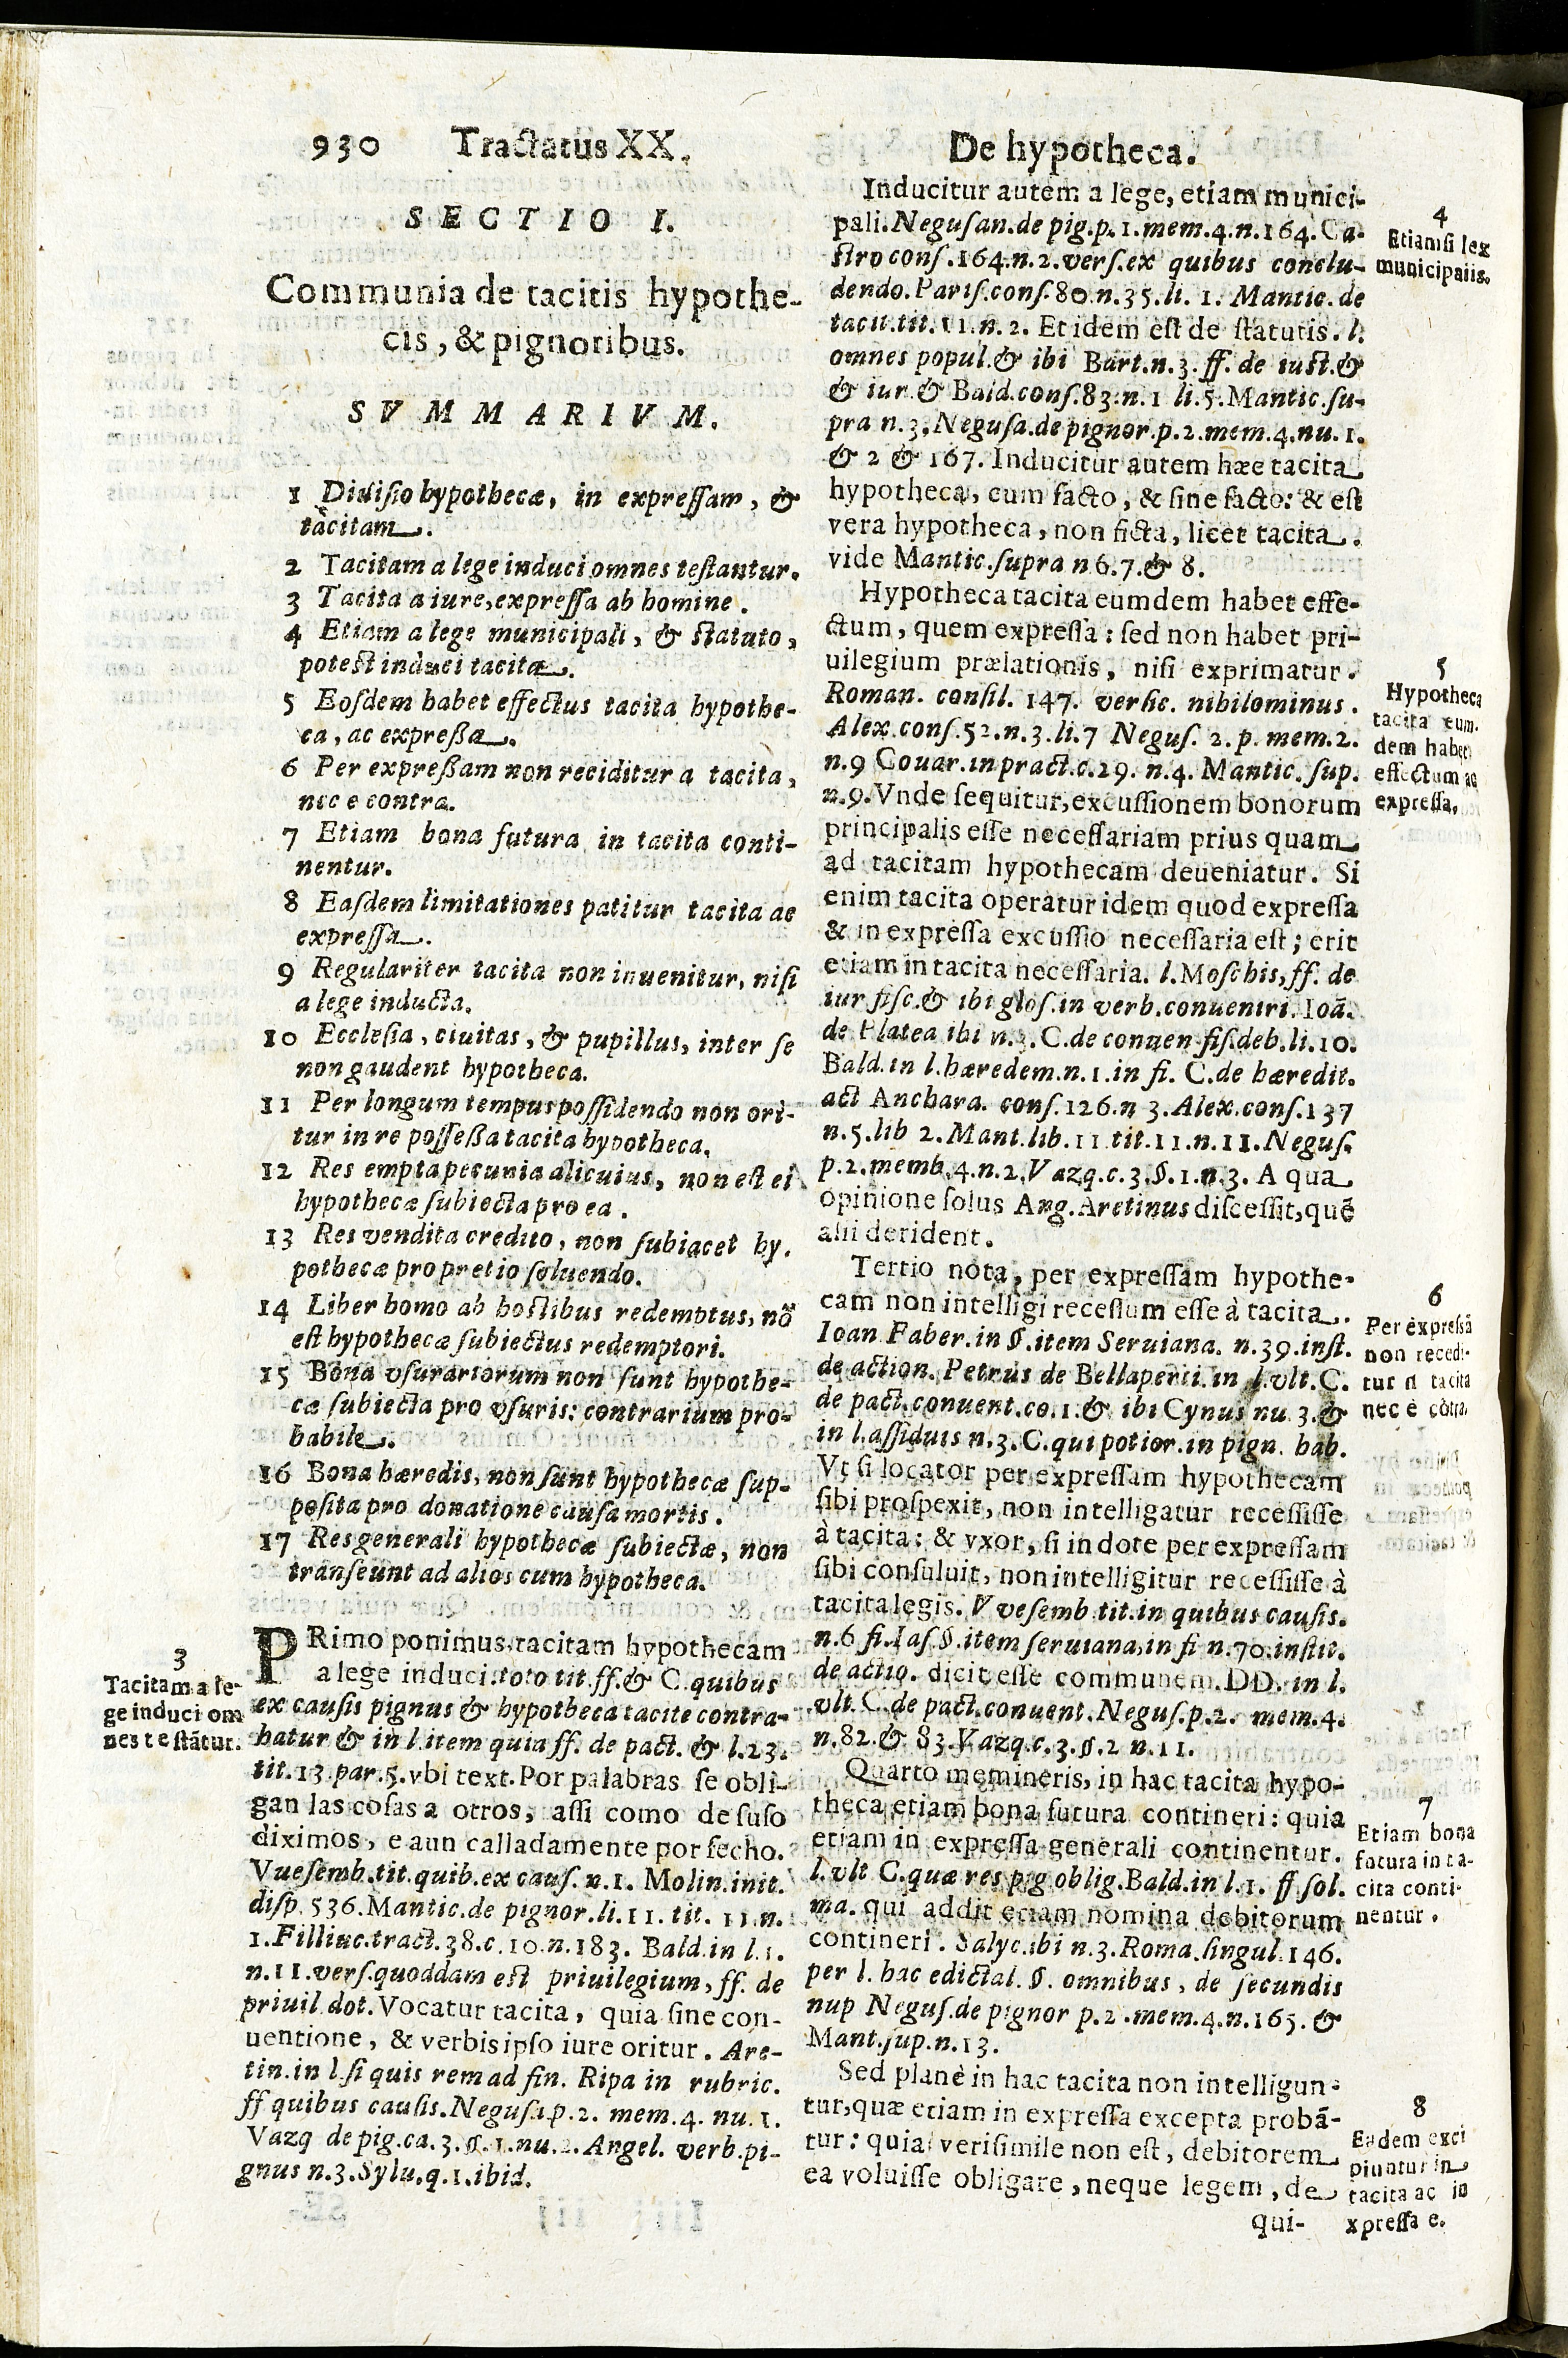 930 Tractatus XX.
SECTIO I.
Communia de tacitis hypothe-
cis, & pignoribus.
SVMMARIVM.
1 Diuisio hypothecæ, in expressam, &
tàcitam.
2 Tacitam a lege induci omnes testantur.
3 Tacita a iure, expressa ab homine.
4 Etiam a lege municipali, & statuto,
potest induci tacita.
5 Eosdem habet effectus tacita hypothe-
ca, ac expressa.
6 Per expressam non reciditur a tacita,
nec e contra.
7 Etiam bona futura in tacita conti-
nentur.
8 Easdem limitationes patitur tacita ac
expressa.
9 Regulariter tacita non inuenitur, nisi
a lege inducta.
10 Ecclesia, ciuitas, & pupillus, inter se
non gaudent hypotheca.
11 Per longum tempus possidendo non ori-
tur in re possessa tacita hypotheca.
12 Res empta pecunia alicuius, non est ei
hypothecæ subiecta pro ea.
13 Res vendita credito, non subiacet hy.
pothecæ pro pretio soluendo.
14 Liber homo ab hostibus redemptus, nõ
est hypothecæ subiectus redemptori.
15 Bona vsurariorum non sunt hypothe-
cæ subiecta pro vsuris: contrarium pro-
babile.
16 Bona hæredis, non sunt hypothecæ sup-
posita pro donatione causa mortis.
17 Res generali hypothecæ subiectæ, non
transeunt ad alios cum hypotheca.
3
Tacitam a le-
ge induci om
nes testãtur.
PRimo ponimus tacitam hypothecam
a lege induci. toto tit. ff. & C. quibus
ex causis pignus & hypotheca tacite contra-
hatur & in l. item quia ff. de pact. & l. 23.
tit. 13. par. 5. vbi text. Por palabras se obli-
gan las cosas a otros, assi como de suso
diximos, e aun calladamente por fecho.
Vuesemb. tit. quib. ex caus. n. 1. Molin. init.
disp. 536. Mantic. de pignor. li. 11. tit. 11. n.
1. Filliuc. tract. 38. c. 10. n. 183. Bald. in l. 1.
n. 11. vers. quoddam est priuilegium, ff. de
priuil. dot. Vocatur tacita, quia sine con-
uentione, & verbis ipso iure oritur. Are-
tin. in l. si quis rem ad fin. Ripa in rubric.
ff quibus causis. Negusa. p. 2. mem. 4. nu. 1.
Vazq de pig. ca. 3. §. 1. nu. 2. Angel. verb. pi-
gnus n. 3. Sylu. q. 1. ibid.
De hypotheca.
Inducitur autem a lege, etiam munici-
pali. Negusan. de pig. p. 1. mem. 4. n. 164. Ca-
stro cons. 164. n. 2. vers. ex quibus conclu-
dendo. Paris. cons. 80. n. 35. li. 1. Mantic. de
tacit. tit. 11. n. 2. Et idem est de statutis. l.
omnes popul. & ibi Bart. n. 3. ff. de iust. &
& iur. & Bald. cons. 83. n. 1 li. 5. Mantic. su-
pra n. 3. Negusa. de pignor. p. 2. mem. 4. nu. 1.
& 2 & 167. Inducitur autem hæc tacita
hypotheca, cum facto, & sine facto: & est
vera hypotheca, non ficta, licet tacita.
vide Mantic. supra n 6. 7. & 8.
4
Etiamsi lex
municipalis.
Hypotheca tacita eumdem habet effe-
ctum, quem expressa: sed non habet pri-
uilegium prælationis, nisi exprimatur.
Roman. consil. 147. versic. nihilominus.
Alex. cons. 52. n. 3. li. 7 Negus. 2. p. mem. 2.
n. 9 Couar. in pract. c. 29. n. 4. Mantic. sup.
n. 9. Vnde sequitur, excussionem bonorum
principalis esse necessariam prius quam
ad tacitam hypothecam deueniatur. Si
enim tacita operatur idem quod expressa
& in expressa excussio necessaria est; erit
etiam in tacita necessaria. l. Moschis, ff. de
iur fisc. & ibi glos. in verb. conueniri. Ioã.
de Platea ibi n. 3. C. de conuen fis. deb. li. 10.
Bald. in l. hæredem. n. 1. in fi. C. de hæredit.
act Anchara. cons. 126. n 3. Alex. cons. 137
n. 5. lib 2. Mant. lib. 11 tit. 11. n. 11. Negus.
p. 2. memb. 4. n. 2. Vazq. c. 3. §. 1. n. 3. A qua
opinione solus Ang. Aretinus discessit, quẽ
alii derident.
5
Hypotheca
tacita eum.
dem habet
effectum ac
expressa.
Tertio nota, per expressam hypothe-
cam non intelligi recessum esse à tacita.
Ioan. Faber. in §. item Seruiana. n. 39. inst.
de action. Petrus de Bellaperti. in l. vlt. C.
de pact. conuent. co. 1. & ibi Cynus nu. 3. &
in l. assiduis n. 3. C. qui potior. in pign. hab.
Vt si locator per expressam hypothecam
sibi prospexit, non intelligatur recessisse
à tacita: & vxor, si in dote per expressam
sibi consuluit, non intelligitur recessisse à
tacita legis. Vvesemb. tit. in quibus causis.
n. 6 fi. Ias. §. item seruiana, in fi n. 70. instit.
de actio. dicit esse communem. DD. in l.
vlt. C. de pact. conuent. Negus. p. 2. mem. 4.
n. 82. & 83. Vazq. c. 3. §. 2 n. 11.
6
Per expressã
non recedi-
tur a tacita
nec è còtra
Quarto memineris, in hac tacita hypo-
theca etiam bona futura contineri: quia
etiam in expressa generali continentur.
l. vlt C. quæ res pig oblig. Bald. in l. 1. ff sol.
ma. qui addit etiam nomina debitorum
contineri. Salyc. ibi n. 3. Roma. singul. 146.
per l. hac edictal. §. omnibus, de secundis
nup Negus. de pignor p. 2. mem. 4. n. 165. &
Mant. sup. n. 13.
7
Etiam bona
futura in ta-
cita conti-
nentur.
Sed planè in hac tacita non intelligun-
tur, quæ etiam in expressa excepta probã-
tur: quia verisimile non est, debitorem
ea voluisse obligare, neque legem, de
qui-
8
Eadem exci
piuntur in
tacita ac in
xpressa e.